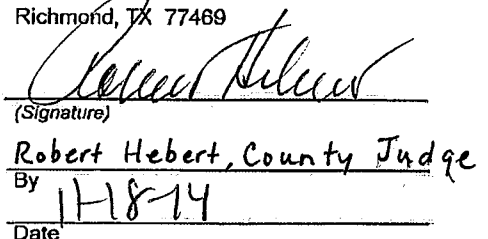 Richmond, TX 77469
Robert Hebert
(Signature)
Robert Hebert, County Judge
By
11-18-14
Date